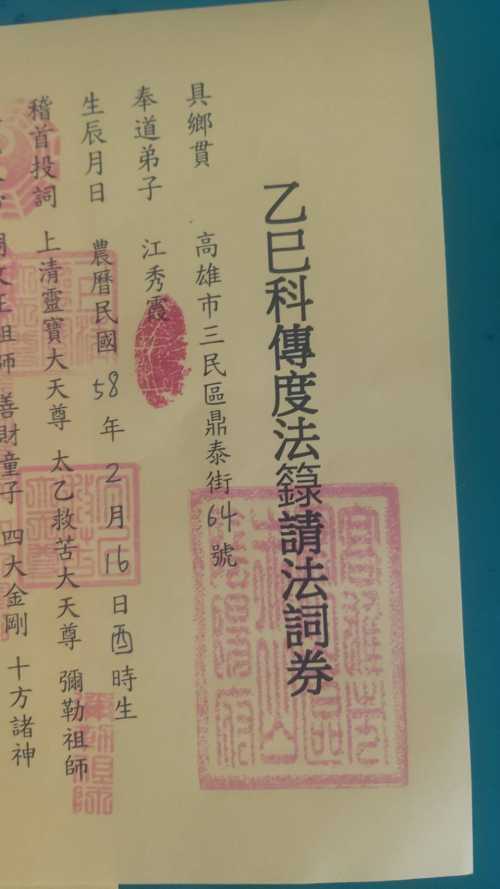 乙巳科傳度法籙請法詞券
具鄉貫 高雄市三民區鼎泰街64號
奉道弟子 江秀霞
生辰月日 農曆民國58年2月16日酉時生
稽首投詞 上清靈寶大天尊 太乙救苦大天尊 彌勒祖師
文王祖師 善財童子 四大金剛 十方諸神